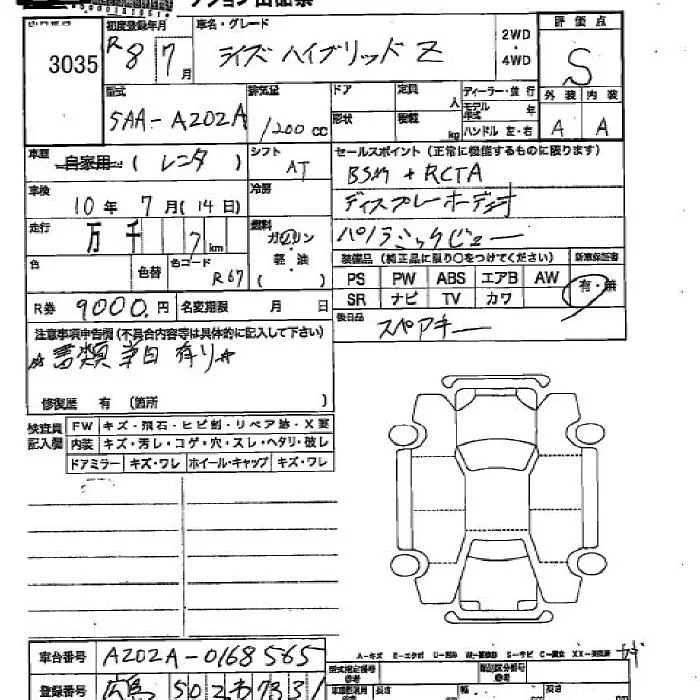 3035
初度登録年月
R8 7月
車名・グレード
ライズ ハイブリッド Z
2WD・4WD
評価点
S
型式
5AA-A202A
排気量
1200 CC
ドア
定員
人
形状
積載
kg
ディーラー・並行
モデル年式
年
ハンドル 左・右
外装 内装
A A
車歴
自家用 (レンタ)
シフト
AT
セールスポイント (正常に機能するものに限ります)
BSM + RCTA
ディスプレーオーディオ
パノラミックビュー
車検
10年 7月 (14日)
冷房
走行
万 千 7 km
燃料
ガソリン
軽・油
( )
色
色替
色コード
R67
装備品 (純正品に限り○をつけてください)
新車保証書
PS PW ABS エアB AW
SR ナビ TV カワ
有・無
R券 9000円
名変期限 月 日
後日品
スペアキー
注意事項申告欄 (不具合内容等は具体的に記入して下さい)
修復歴 有 (箇所 )
検査員記入欄
FW キズ・飛石・ヒビ割・リペア跡・X要
内装 キズ・汚レ・コゲ・穴・スレ・ヘタリ・破レ
ドアミラー キズ・ワレ ホイール・キャップ キズ・ワレ
車台番号 A202A-0168565
登録番号 広島 502